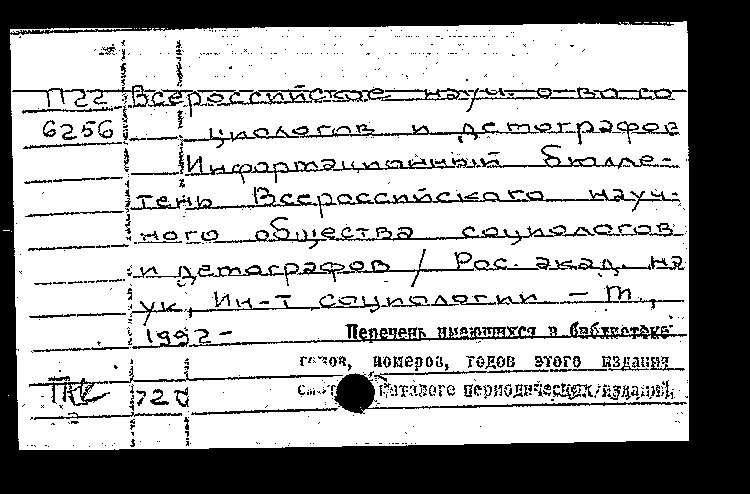 П22 Всероссийское науч. о-во со
6256 циологов и демографов
Информационный бюлле-
тень Всероссийского науч-
ного общества социологов
и демографов / Рос. акад. на
ук, Ин-т социологии - М.,
1992-
Перечень имеющихся в библиотеке
годов, номеров, годов этого издания
каталоге периодических изданий.